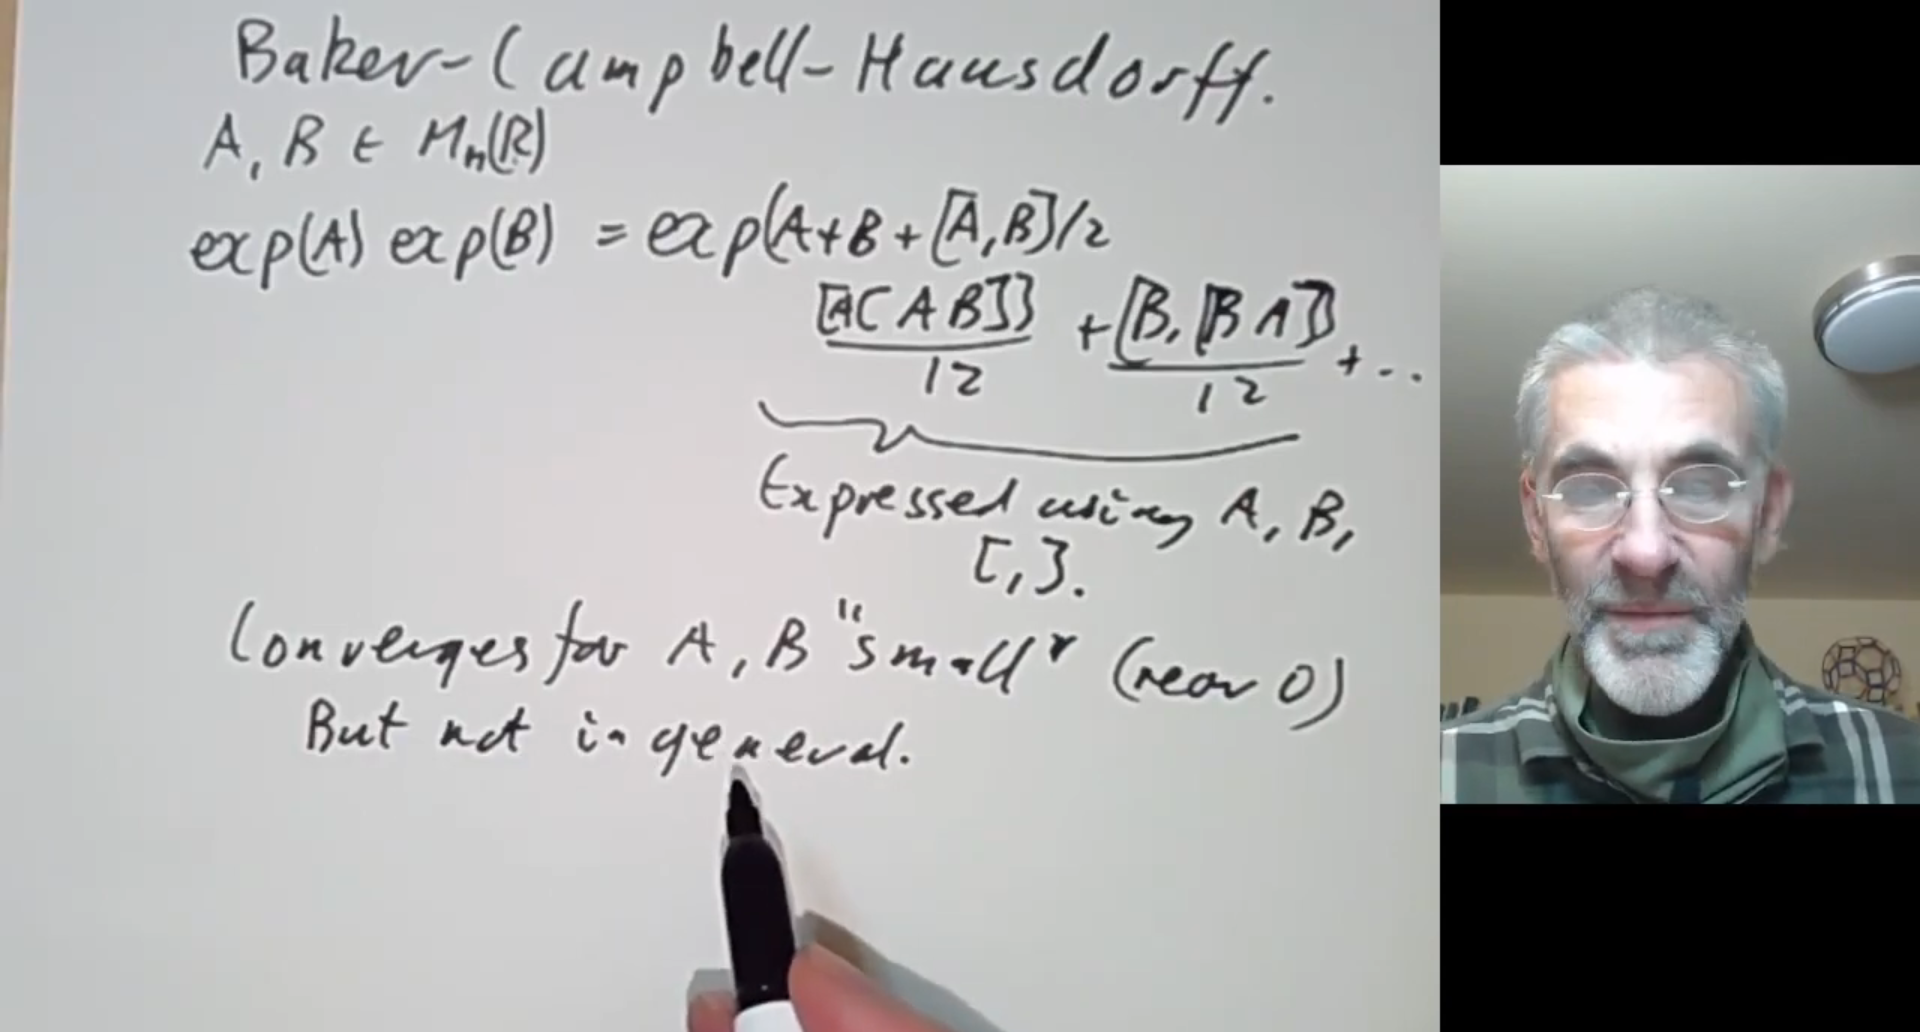 Baker-Campbell-Hausdorff.
A, B ∈ Mn(R)
exp(A) exp(B) = exp(A+B+[A,B]/2
[A[AB]]/12 + [B,[BA]]/12 + ...
Expressed using A, B,
[,].
Converges for A, B "small" (near 0)
But not in general.